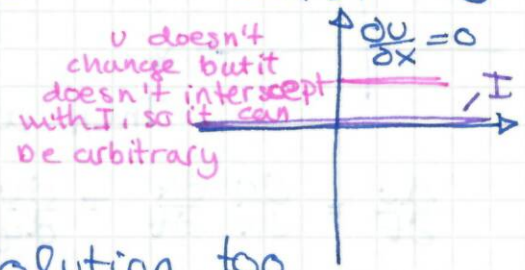 u doesn't
change but it
doesn't interscept
with I, so it can
be arbitrary
∂U/∂x = 0
I
solution too